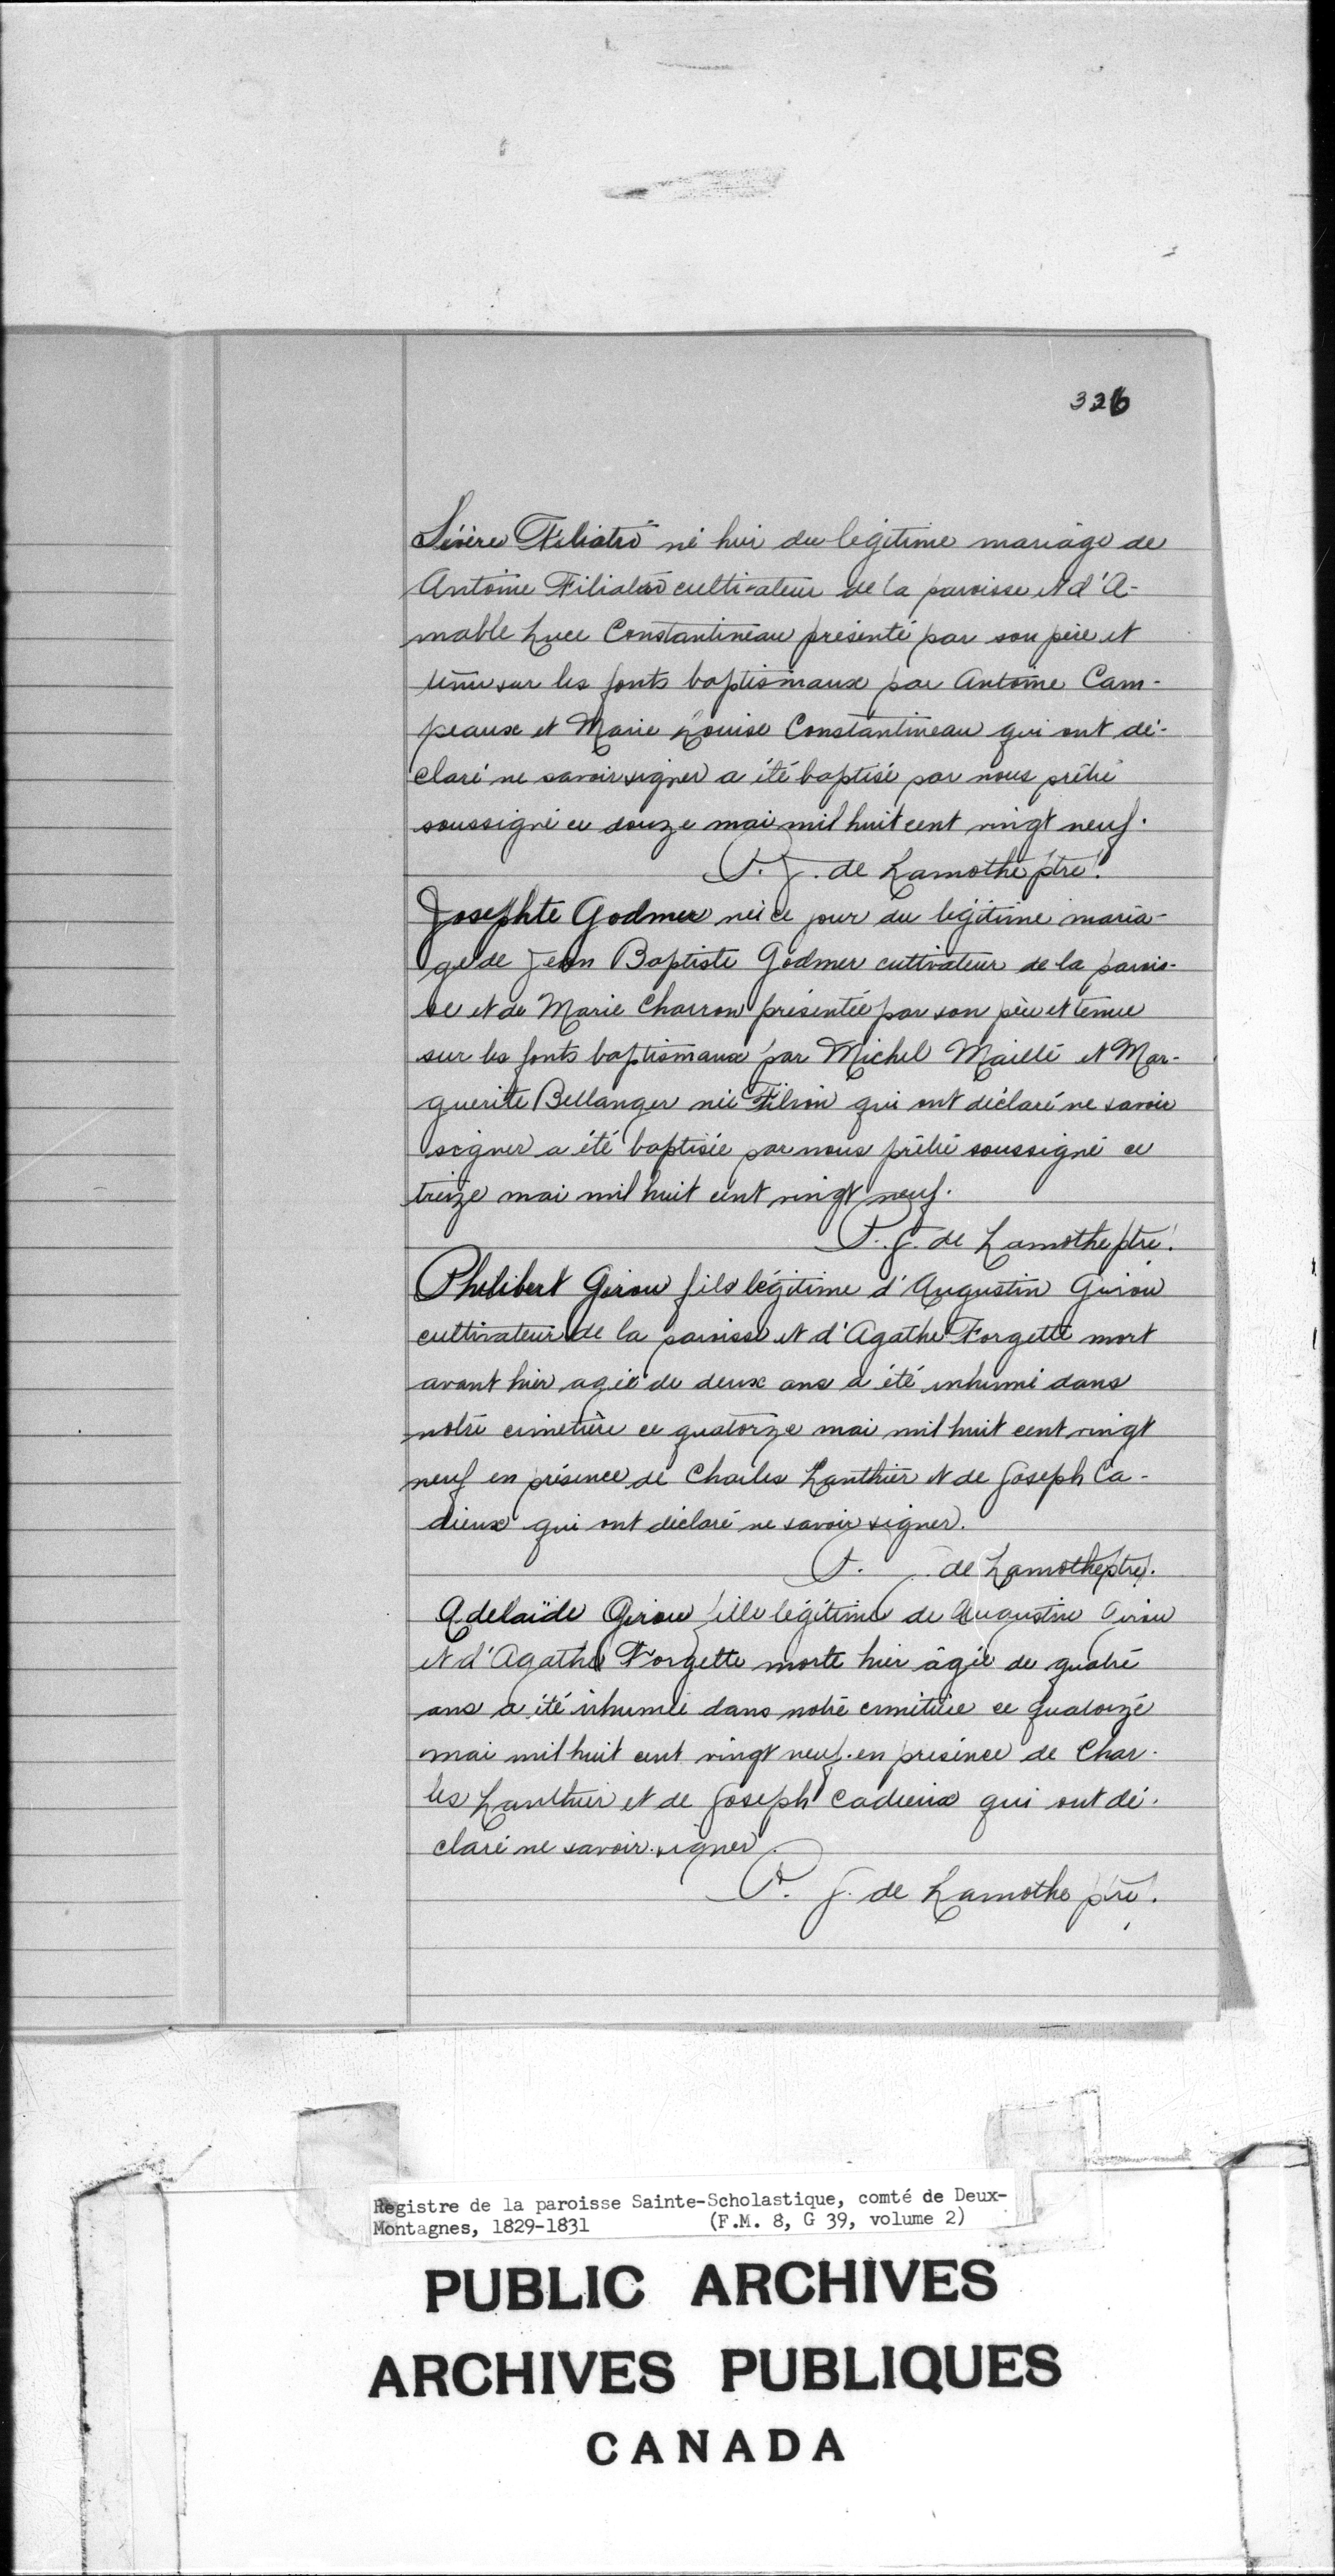 326
Sévère Filiatrō né hier du légitime mariage de
Antoine Filiatrō cultivateur de la paroisse et d'A-
mable Luce Constantineau présenté par son père et
tenu sur les fonts baptismaux par Antoine Cam-
peaux et Marie Louise Constantineau qui ont dé-
claré ne savoir signer a été baptisé par nous prêtre
soussigné ce douze mai mil huit cent vingt neuf.
P. J. de Lamothe ptre.
Josephte Godmer née ce jour du légitime maria-
ge de Jean Baptiste Godmer cultivateur de la parois-
se et de Marie Charron présentée par son père et tenue
sur les fonts baptismaux par Michel Maillé et Mar-
guerite Bellanger née Filion qui ont déclaré ne savoir
signer a été baptisée par nous prêtre soussigné ce
treize mai mil huit cent vingt neuf.
P. J. de Lamothe ptre.
Philibert Girou fils légitime d'Augustin Girou
cultivateur de la paroisse et d'Agathe Forgette mort
avant hier agée de deux ans a été inhumé dans
notre cimetière ce quatorze mai mil huit cent vingt
neuf en présence de Charles Lanthier et de Joseph Ca-
dieux qui ont déclaré ne savoir signer.
P. J. de Lamothe ptre.
Adelaïde Girou fille légitime de Augustin Girou
et d'Agathe Forgette morte hier âgée de quatre
ans a été inhumée dans notre cimetière ce quatorze
mai mil huit cent vingt neuf. en présence de Char-
les Lanthier et de Joseph Cadieux qui ont dé-
claré ne savoir signer.
P. J. de Lamothe ptre.
Registre de la paroisse Sainte-Scholastique, comté de Deux-
Montagnes, 1829-1831 (F.M. 8, G 39, volume 2)
PUBLIC ARCHIVES
ARCHIVES PUBLIQUES
CANADA